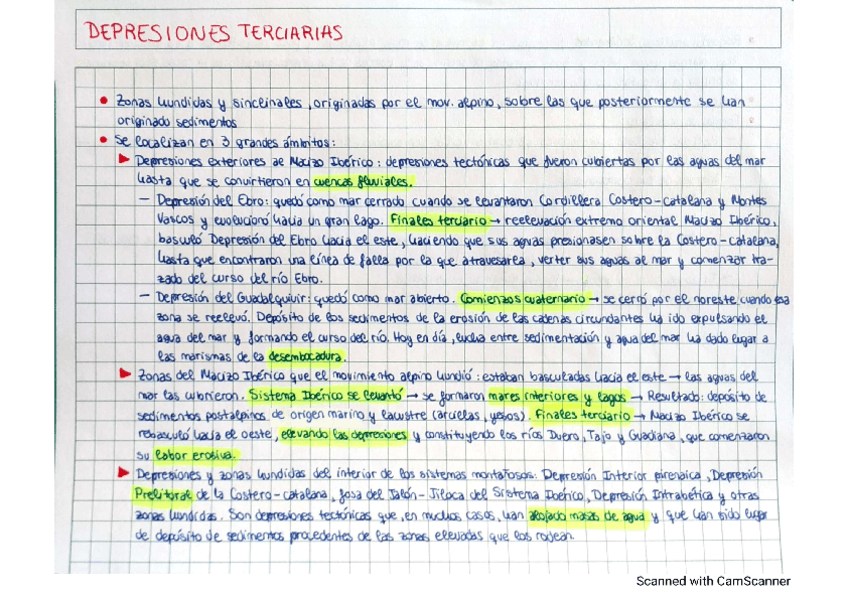 DEPRESIONES TERCIARIAS
• Zonas hundidas y sinclinales, originadas por el mov. alpino, sobre las que posteriormente se han
originado sedimentos
• Se localizan en 3 grandes ámbitos:
▶ Depresiones exteriores al Macizo Ibérico: depresiones tectónicas que fueron cubiertas por las aguas del mar
hasta que se convirtieron en cuencas fluviales.
– Depresión del Ebro: quedó como mar cerrado cuando se levantaron Cordillera Costero-catalana y Montes
Vascos y evolucionó hacia un gran lago. Finales terciario → reelevación extremo oriental Macizo Ibérico,
basculó Depresión del Ebro hacia el este, haciendo que sus aguas presionasen sobre la Costero-catalana,
hasta que encontraron una línea de falla por la que atravesarla, verter sus aguas al mar y comenzar tra-
zado del curso del río Ebro.
– Depresión del Guadalquivir: quedó como mar abierto. Comienzos cuaternario → se cerró por el noreste cuando esa
zona se reelevó. Depósito de los sedimentos de la erosión de las cadenas circundantes ha ido expulsando el
agua del mar y formando el curso del río. Hoy en día, lucha entre sedimentación y agua del mar ha dado lugar a
las marismas de la desembocadura.
▶ Zonas del Macizo Ibérico que el movimiento alpino hundió: estaban basculadas hacia el este → las aguas del
mar las cubrieron. Sistema Ibérico se levantó → se formaron mares interiores y lagos → Resultado: depósito de
sedimentos postalpinos de origen marino y lacustre (arcillas, yesos). Finales terciario → Macizo Ibérico se
rebasculó hacia el oeste, elevando las depresiones y constituyendo los ríos Duero, Tajo y Guadiana, que comenzaron
su labor erosiva.
▶ Depresiones y zonas hundidas del interior de los sistemas montañosos: Depresión Interior pirenaica, Depresión
Prelitoral de la Costero-catalana, fosa del Jalón-Jiloca del Sistema Ibérico, Depresión Intrabética y otras
zonas hundidas. Son depresiones tectónicas que, en muchos casos, han alojado masas de agua y que han sido lugar
de depósito de sedimentos procedentes de las zonas elevadas que los rodean.
Scanned with CamScanner